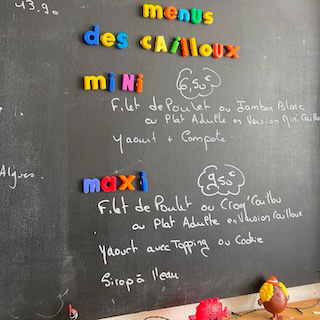 43.90
menus
des cailloux
mini
6,50€
Filet de Poulet ou Jambon Blanc
ou Plat Adulte en Version Mini Caillou
Yaourt + Compote
Algues.
maxi
9,50€
Filet de Poulet ou Croq'Caillou
ou Plat Adulte en Version Cailloux
Yaourt avec Topping ou Cookie
Sirop à l'eau